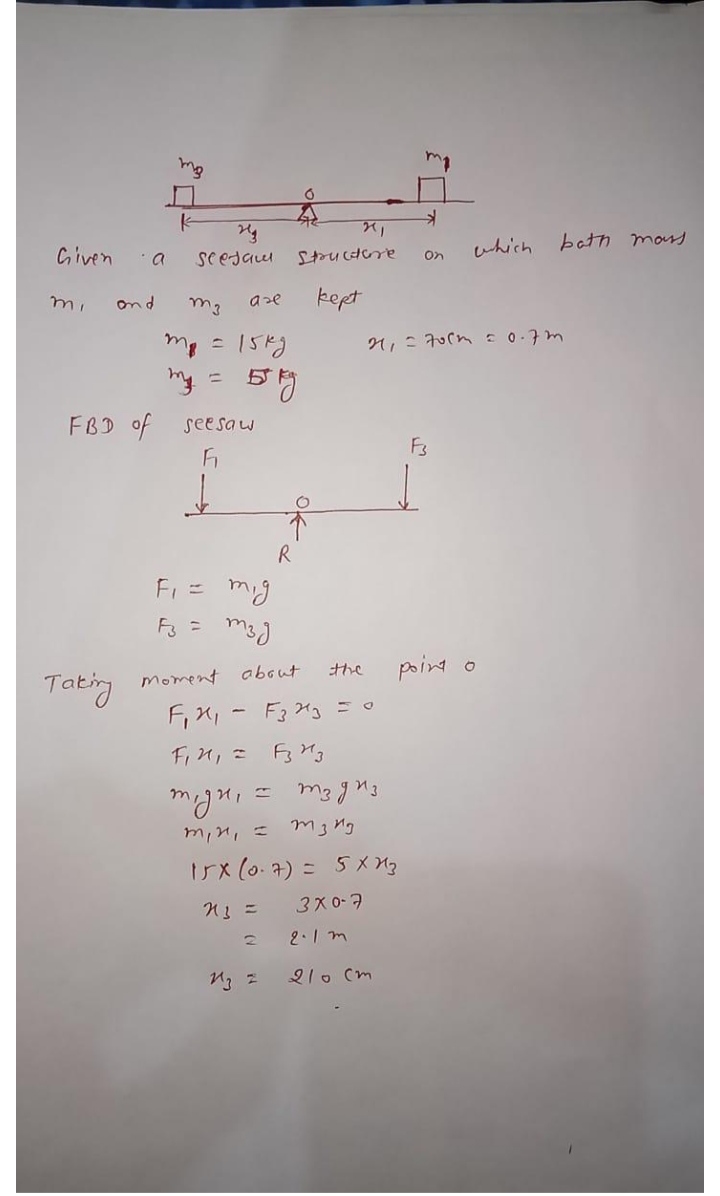 m3 m1
O
x3 x1
Given a seesaw structure on which both mass
m1 and m3 are kept
m1 = 15kg x1 = 70cm = 0.7m
m3 = 5 kg
FBD of seesaw
F1 F3
O
R
F1 = m1g
F3 = m3g
Taking moment about the point o
F1x1 - F3x3 = 0
F1x1 = F3x3
m1gx1 = m3gx3
m1x1 = m3x3
15x(0.7) = 5 x x3
x3 = 3x0.7
= 2.1 m
x3 = 210 cm